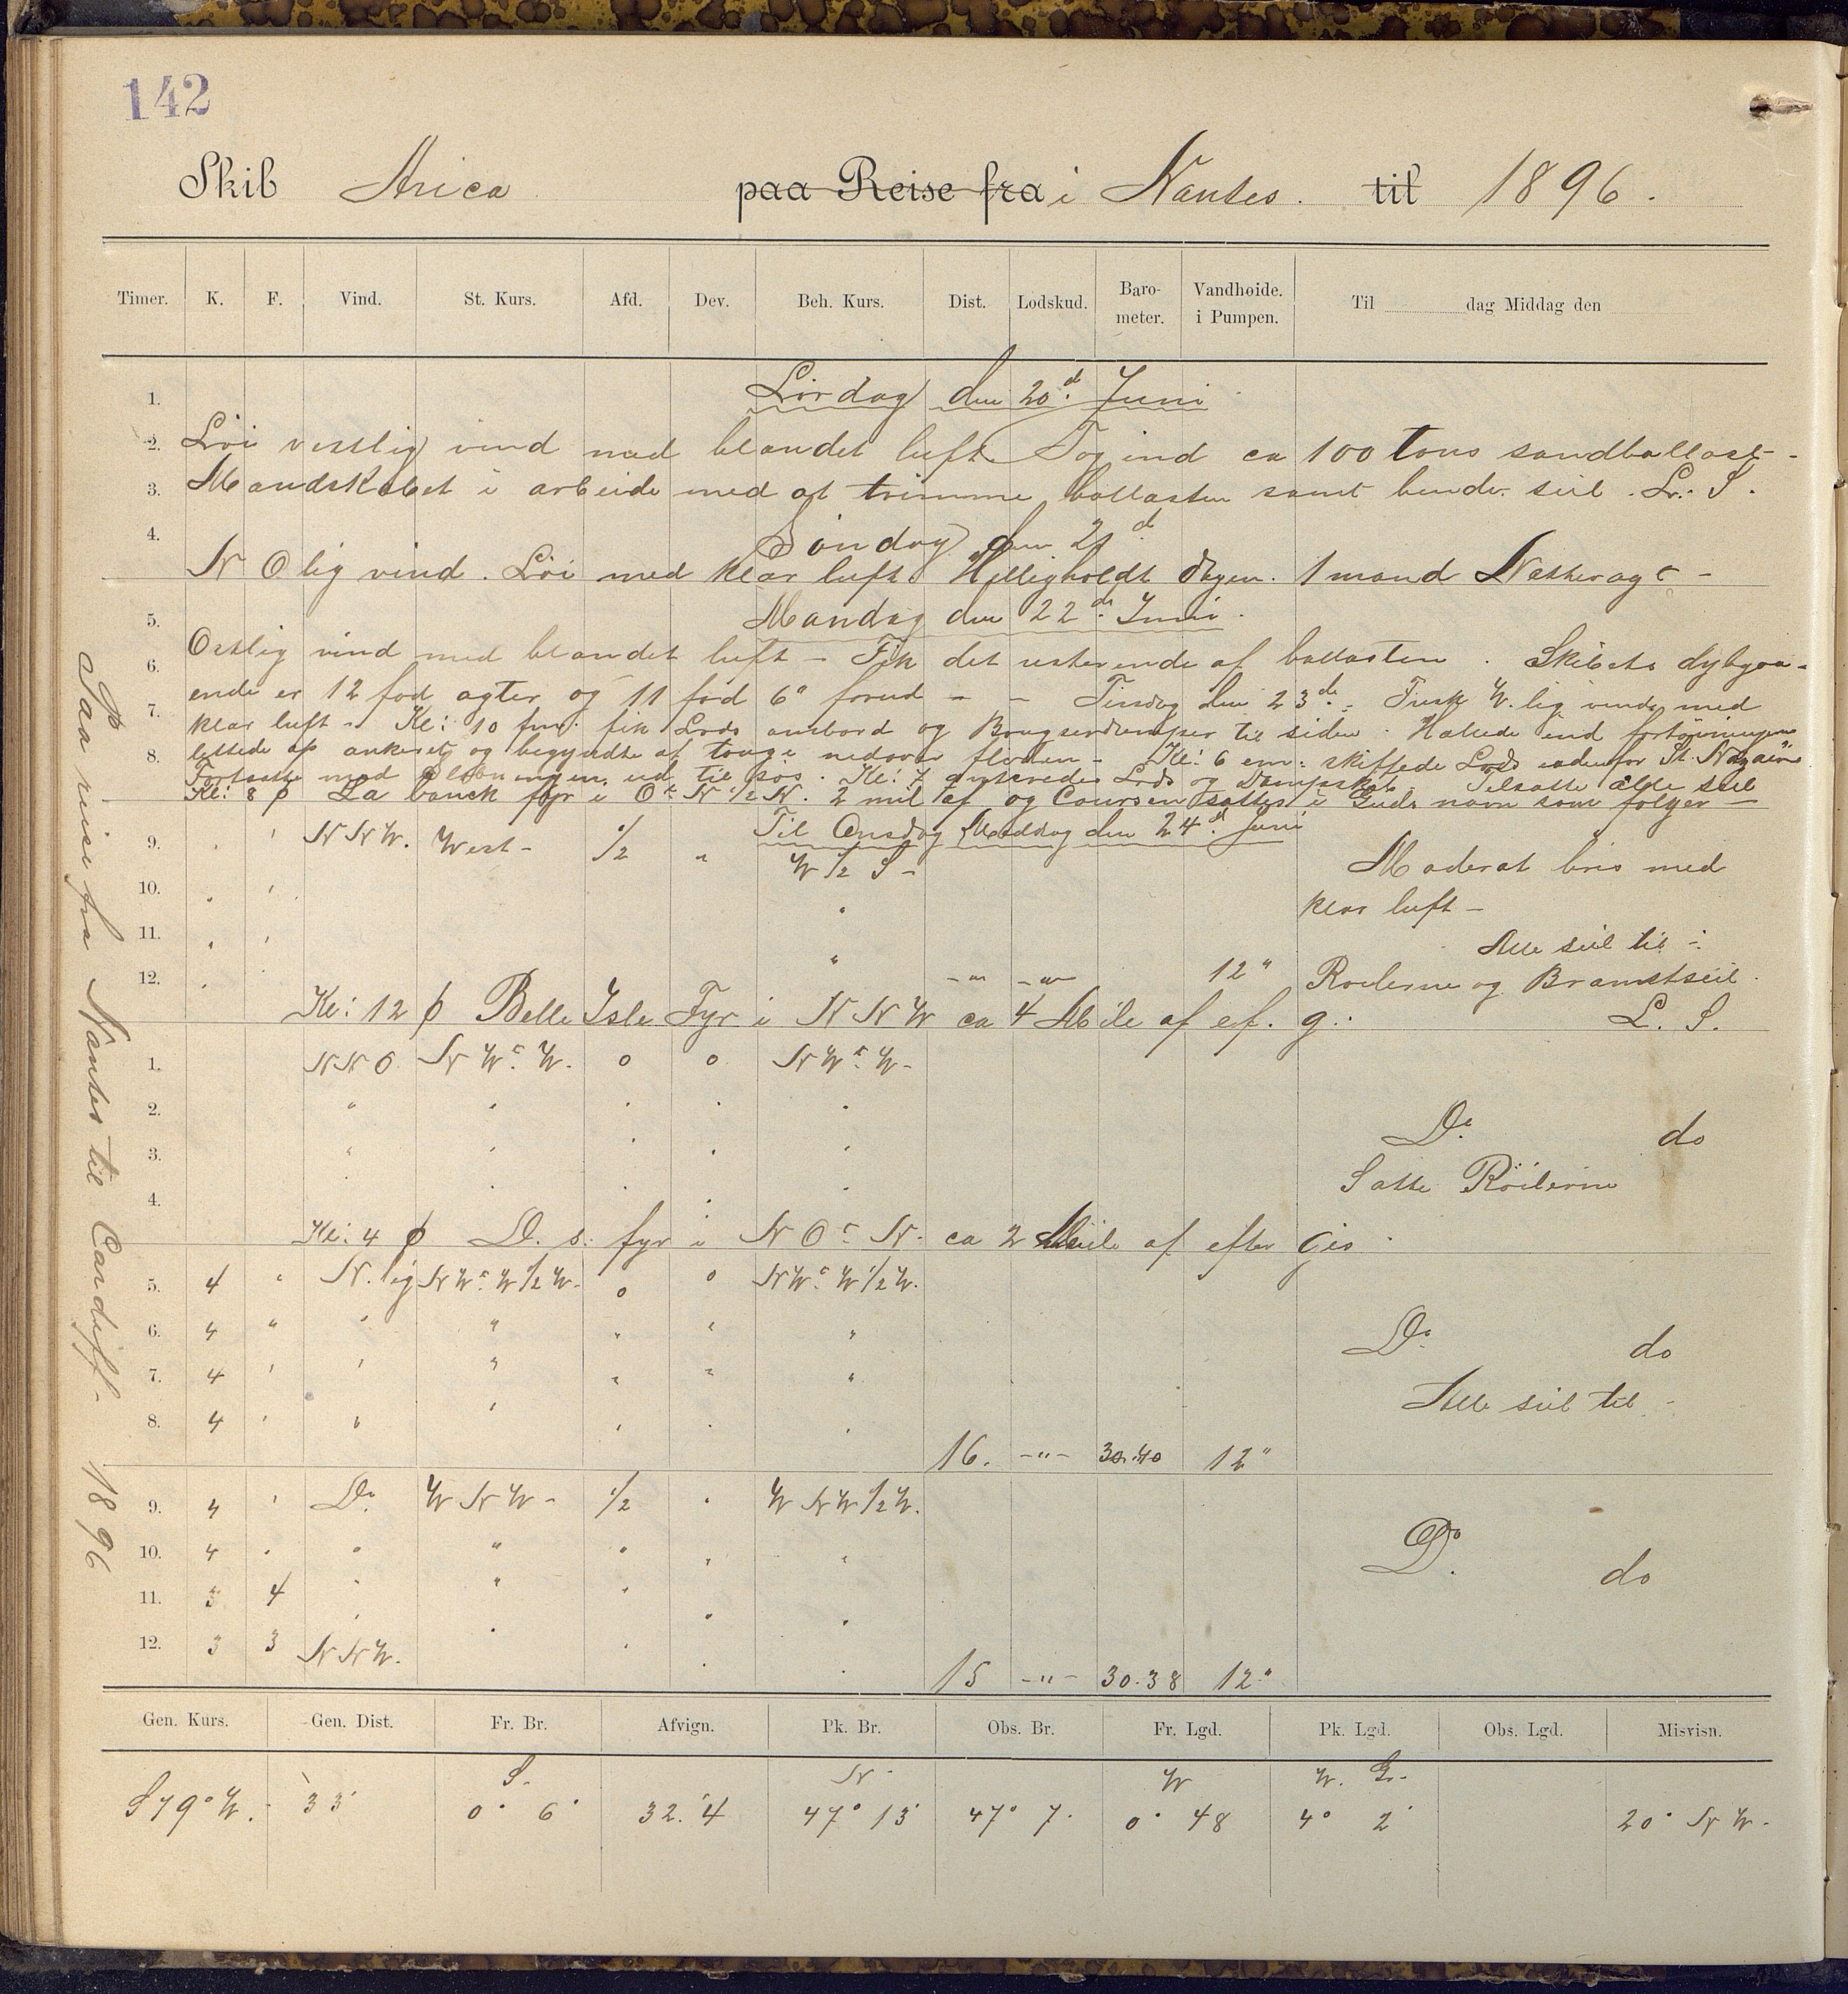 142
Skib Arica paa Reise fra i Nantes. til 1896.
Timer. K. F. Vind. St. Kurs. Afd. Dev. Beh. Kurs. Dist. Lodskud. Baro-meter. Vandhøide. i Pumpen. Til dag Middag den
Lørdag den 20d. Juni
1.
2. Löi vestlig vind med blandet luft. Tog ind ca 100 tons sandballast -
3. Mandskabet i arbeide med at trimme ballasten samt bende seil. L. S.
4. Söndag den 21d
N O lig vind. Löi med klar luft Helligholdt dagen. 1 mand
5. Mandag den 22de. Juni.
Ostlig vind med blandet luft - Fik det resterende af ballasten. Skibets dybgaa-
6.
ende er 12 fod agter og 11 fod 6" forud - - Tirsdag den 23de. Frisk W. lig vind med
7.
klar luft - Kl: 10 fm. fik Lods ombord og Bougserdamper til siden. Halede ind fortöiningerne
8. lettede op ankeret og begyndte at touge nedover floden - Kl: 6 em: skiftede Lods udenfor St. Nazaire
Fortsatte med ud til sös. Kl: 7 Lods og Dampskib Tilsatte alle seil
Kl: 8 ø La banck fyr i Ot. N 1/2 N. 2 mil af og Coursen sattes i Guds navn som fölger -
Til Onsdag Middag den 24d. Juni
9. " ' NNW. West - 1/2 " W 1/2 S - Moderat bris med
10. " ' " klar luft -
11. " ' " Alle seil til ÷
12. " -"- -"- 12" Roilerne og Bramstseil.
Kl: 12 ø Belle Isle Fyr i NNW ca 4 Mile af ef. g.. L. S.
1. NNO NWt. W. 0 0 NWt. W-
2. " " " " " Do. do
3. " " " " " Satte Röilerne
4. " " " "
Kl: 4 ø D. s. fyr i N Ot N. ca 2 Mile af efter Gis.
5. 4 " N. lig NWt. W 1/2 W. 0 0 NWt. W 1/2 W.
6. 4 " " " " " " Do. do
7. 4 ' ' " " " " Alle seil til -
8. 4 ' " " " " "
16. -"- 30.40 12"
9. 4 ' Do. WNW - 1/2 " WNW 1/2 W.
10. 4 " " " " " " Do. do
11. 3 4 " " " " "
12. 3 3 NNW. " " " "
15 -"- 30.38 12"
Gen. Kurs. Gen. Dist. Fr. Br. Afvign. Pk. Br. Obs. Br. Fr. Lgd. Pk. Lgd. Obs. Lgd. Misvisn.
S. N. W W. Gr.
S 79° W. 33' 0° 6' 32.'4 47° 13' 47° 7. 0° 48 4° 2' 20° NW.
Paa reise fra Nantes til Cardiff - 1896